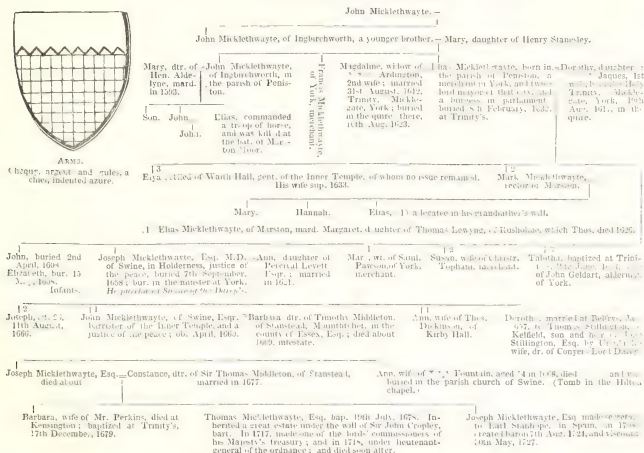 John Micklethwayte.
John Micklethwayte, of Inglorchworth, a younger brother. Mary, daughter of Henry Stanesley.
Mary, dtr. of
Hen. Alde-
lyne, mard.
in 1593.
John Micklethwayte,
of Ingborchworth, in
the parish of Penis-
ton.
Francis Micklethwayte,
of York, merchant.
Magdaline, widow of
Ardington,
2nd wife; married
31st August, 1612,
Trinity, Mickle-
gate, York; buried
in the quire there,
10th Aug. 1623.
Elias Micklethwayte, born in
the parish of Peniston, a
merchant in York, and twice
lord mayor of that city, and
a burgess in parliament
buried 8th February, 1632,
at Trinity's.
Dorothy, daughter
Jaques, 1st
Trinity, Mickle-
gate, York, 19th
Aug. in the
quire.
Son.
John
John.
Elias, commanded
a troop of horse,
and was killed at
the bat. of Mar-
ston Moor.
Arms.
Chequy, argent and gules, a
chief, indented azure.
3
Elias of Warth Hall, gent. of the Inner Temple, of whom no issue remained.
His wife sup. 1633.
2
Mark Micklethwayte,
rector of Marston.
Mary.
Hannah.
Elias, a legatee in his grandfather's will.
1 Elias Micklethwayte, of Marston, mard. Margaret, daughter of Thomas Lewyng, of Rusholme, which Thos. died 1626.
John, buried 2nd
April, 1608
Elizabeth, bur. 15
Infants.
Joseph Micklethwayte, Esq. M.D.
of Swine, in Holderness, justice of
the peace, buried 7th September,
1658; bur. in the minster at York.
Ann, daughter of
Percival Levett
Esqr.; married
in
Mar, wf. of Saml.
Pawson of York,
merchant.
2
Susan, wife of Christr.
Topham, merchant.
Tabitha, baptized at Trini-
of John Geldart, alderman
of York.
2
Joseph,
11th August,
1666.
1
John Micklethwayte, of Swine, Esqr.
barrister of the Inner Temple, and a
justice of the peace; ob. April, 1660.
Barbara dtr. of Timothy Middleton,
of Stanstead, Mountfitchet, in the
county of Essex, Esq.; died about
1669, intestate.
Ann, wife of Thos.
Dickinson, of
Kirby Hall.
Doroth married at Belfrys,
to Thomas Stillington
Kelfield, son and
Stillington, Esq. by
wife, dr. of Conyers Lord Darcy
Joseph Micklethwayte, Esq.
died about
Constance, dtr. of Sir Thomas Middleton, of Stanstead,
married in 1677.
Ann, wife of Fountain, aged died and
buried in the parish church of Swine. (Tomb in the Hilton
chapel.)
Barbara, wife of Mr. Perkins, died at
Kensington; baptized at Trinity's,
17th December, 1679.
Thomas Micklethwayte, Esq. bap. 19th July, 1678. In-
herited a great estate under the will of Sir John Cropley,
bart. In 1717, made one of the lords' commissioners of
his Majesty's treasury; and in 1718, under lieutenant-
general of the ordnance; and died soon after.
Joseph Micklethwayte, Esq made
to Earl Stanhope, in Spain, an
create Baron 7th Aug. and viscount
10th May, 1727.